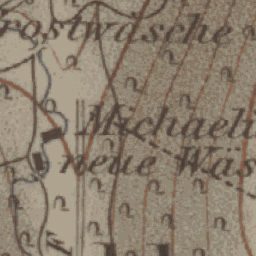 rostwäsche
Michaeli
neue Wäs
F